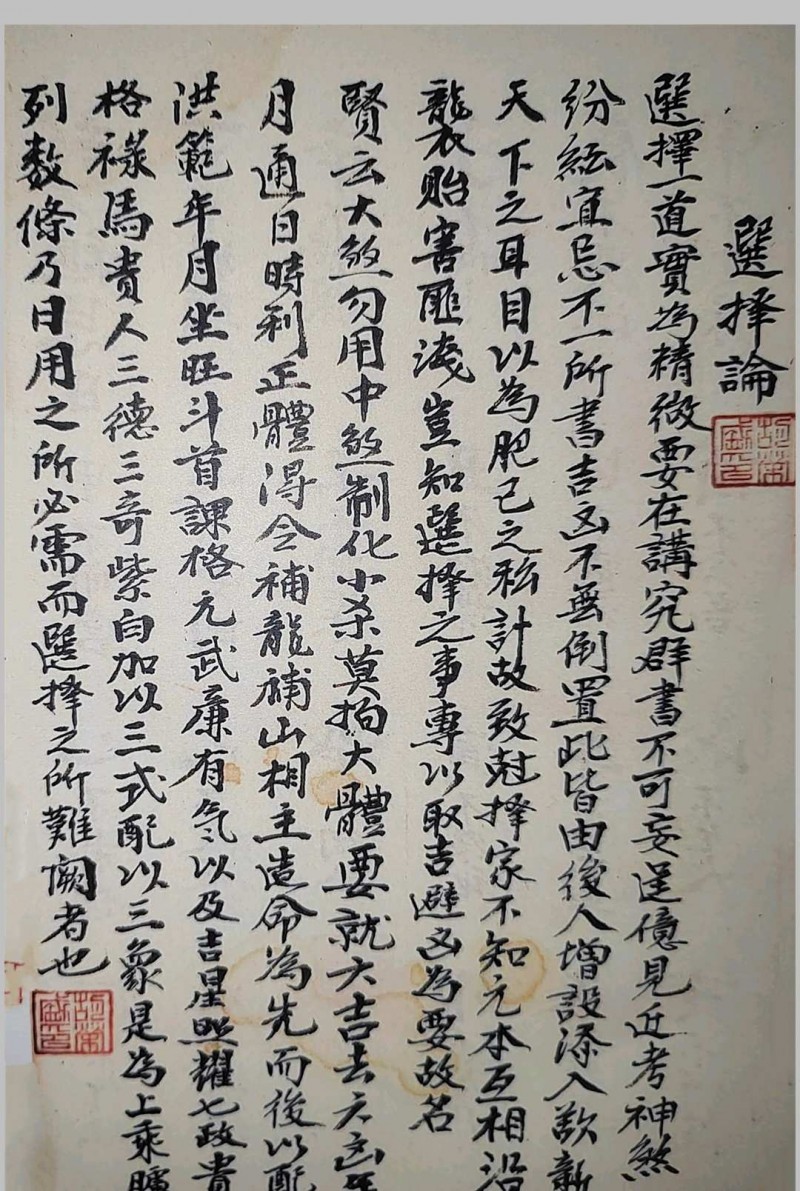 選擇論
選擇一道實為精微要在講究群書不可妄逞億見近考神煞
紛紜宜忌不一所書吉凶不無倒置此皆由後人增設添入歎新
天下之耳目以為肥己之私計故致尅擇家不知元本互相沿
襲貽害匪淺豈知選擇之事專以取吉避凶為要故名
賢云大煞勿用中煞制化小杀莫拘大體要就大吉去大凶年
月通日時利正體得令補龍補山相主造命為先而後以配
洪範年月坐旺斗首課格元武廉有氣以及吉星照耀七政貴
格祿馬貴人三德三奇紫白加以三式配以三象是為上乘
列數條乃日用之所必需而選擇之所難闕者也